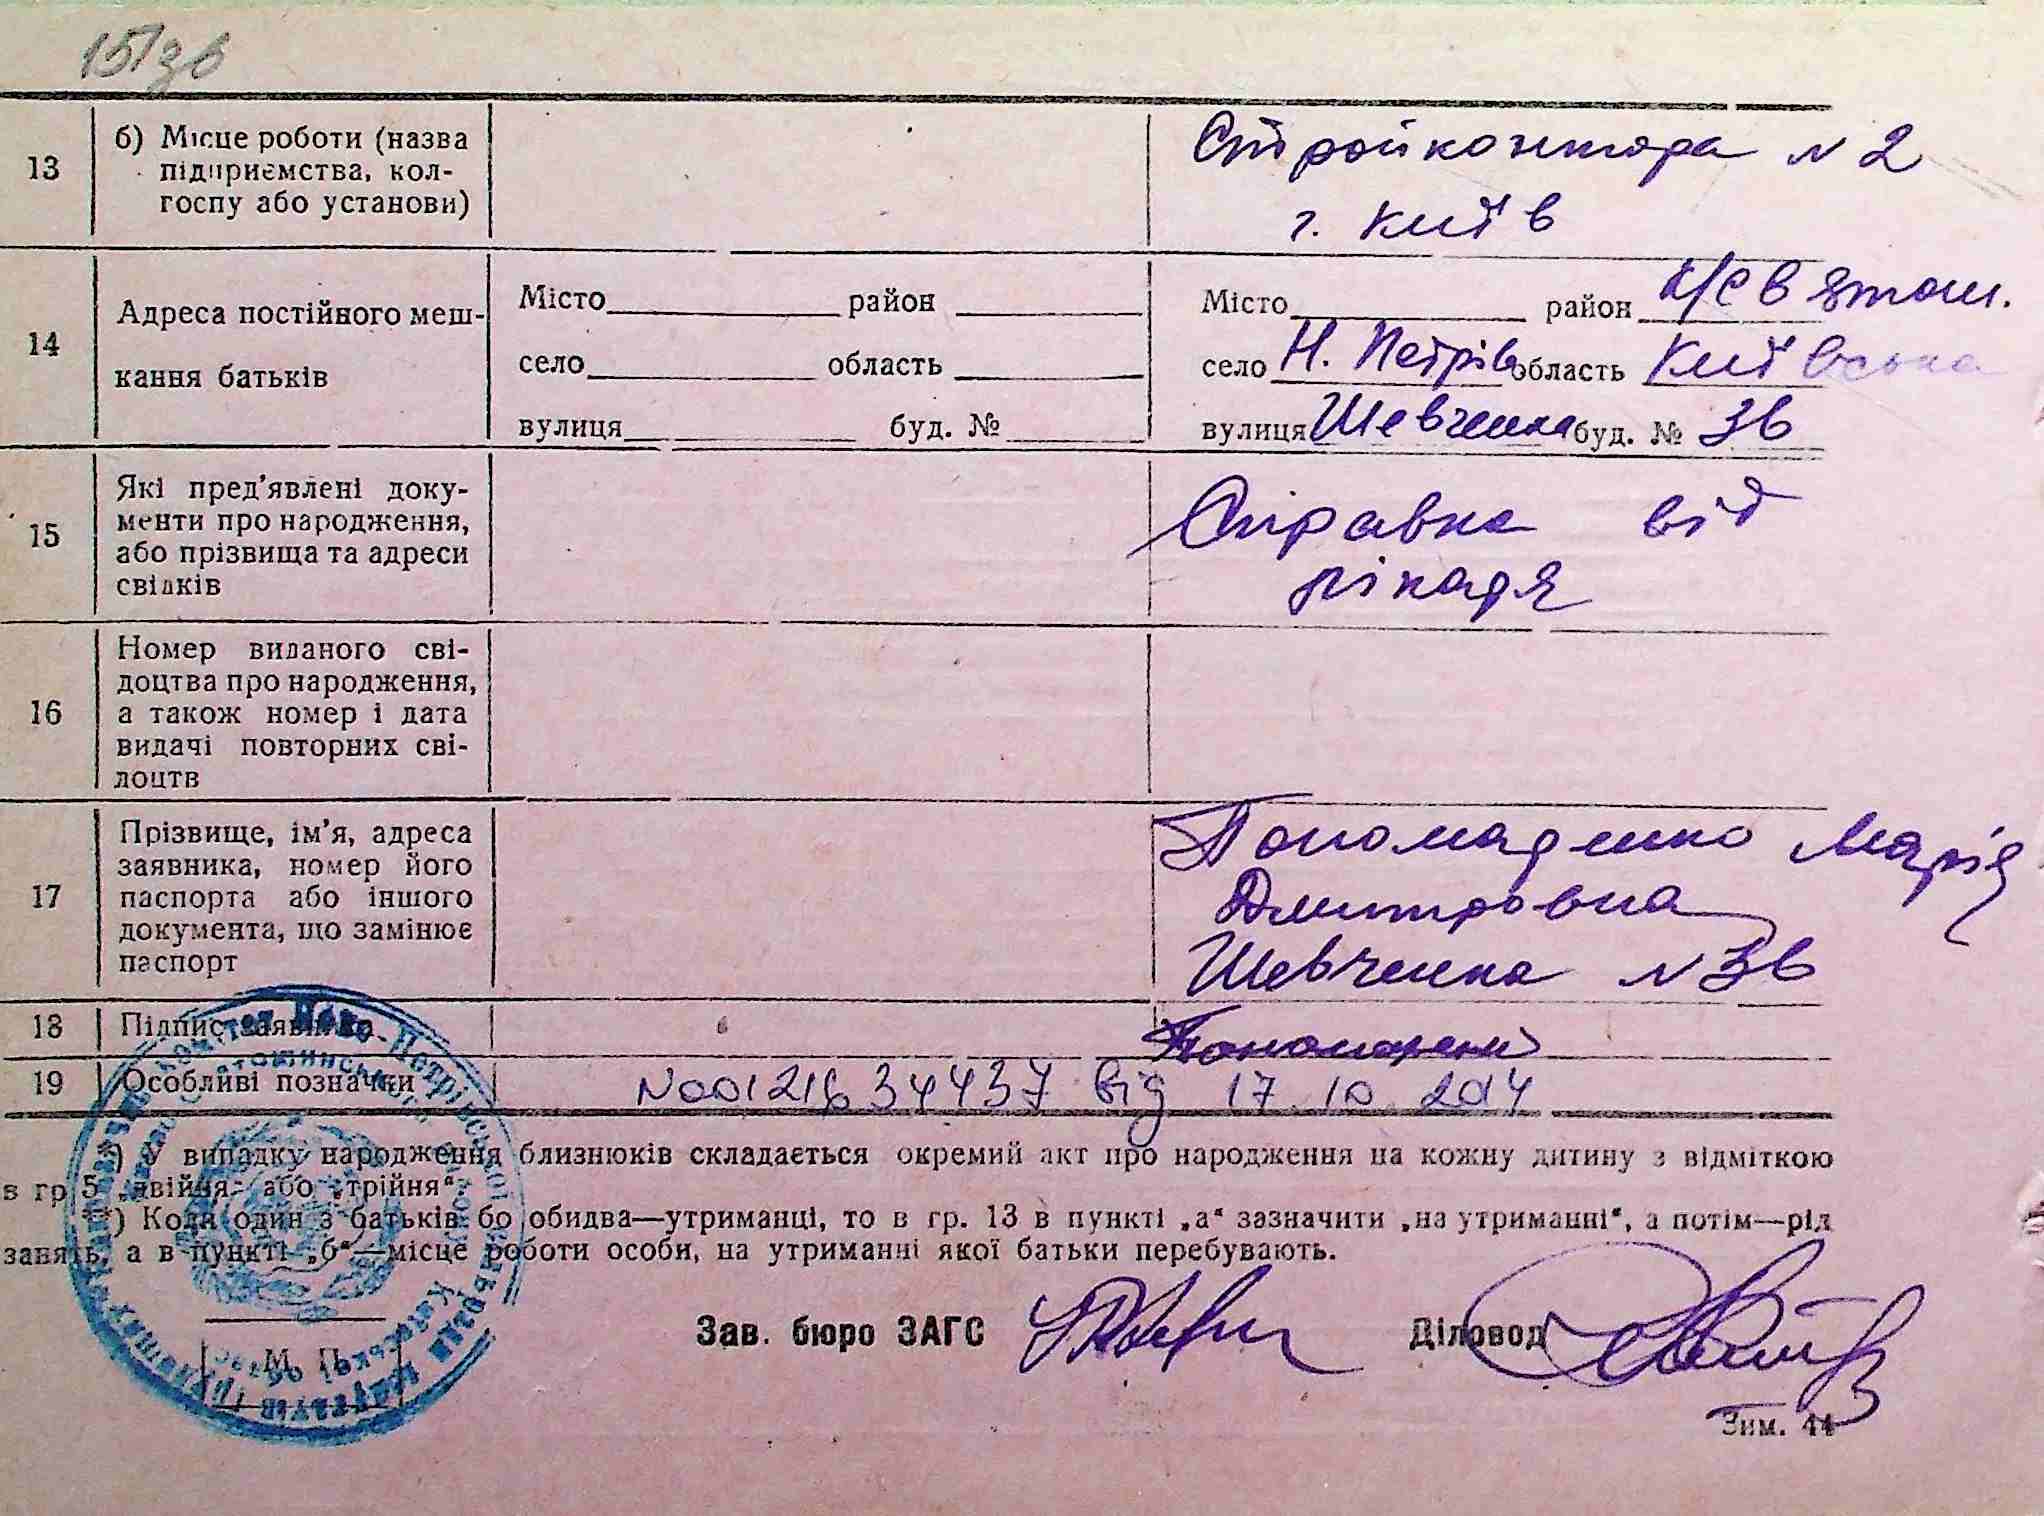 151зв
13
б) Місце роботи (назва
підприємства, кол-
госпу або установи)
Стройконтора N 2
г. Київ
14
Адреса постійного меш-
кання батьків
Місто район
село область
вулиця буд. №
Місто район К/Святош.
село Н. Петрівці область Київська
вулиця Шевченка буд. № 36
15
Які пред'явлені доку-
менти про народження,
або прізвища та адреси
свідків
Справка від
лікаря
16
Номер виданого сві-
доцтва про народження,
а також номер і дата
видачі повторних сві-
доцтв
17
Прізвище, ім'я, адреса
заявника, номер його
паспорта або іншого
документа, що замінює
паспорт
Пономаренко Марія
Дмитровна
Шевченка N 36
18
Підпис заявника
Пономаренко
19
Особливі позначки
N00121634437 від 17.10.2014
*) У випадку народження близнюків складається окремий акт про народження на кожну дитину з відміткою
в гр. 5 „двійня" або „трійня".
**) Коли один з батьків бо обидва—утриманці, то в гр. 13 в пункті „а" зазначити „на утриманні", а потім—рід
занять, а в пункті „б"—місце роботи особи, на утриманні якої батьки перебувають.
Зав. бюро ЗАГС
Діловод
М. П.
Зим. 44